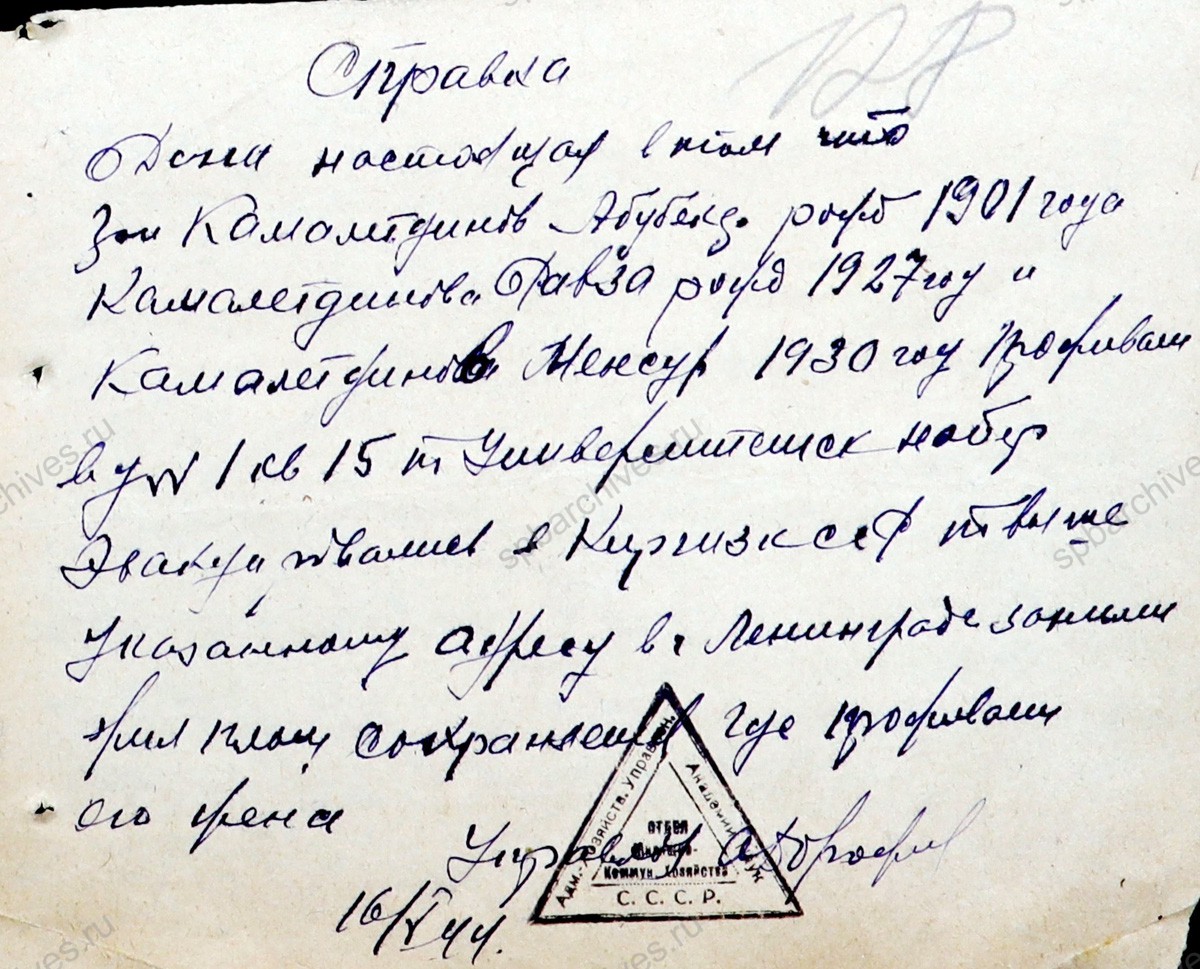 128
Справка
Дана настоящая в том что
Камалетдинов Абубекр рожд 1901 года
Камалетдинова Равза рожд 1927 году и
Камалетдинов Менсур 1930 году проживали
в д № 1 кв 15 по Университетск набер
Эвакуировались в Киргизк ССР по выше
указанному адресу в г Ленинграде занима
жил площ сохраняется где проживали
его жена
Управдом
16/V 44.
Адм.-Хозяйств. Управлен.
Академии Наук
ОТДЕЛ
Жилищно-
Коммун. Хозяйства
С. С. С. Р.
spbarchives.ru